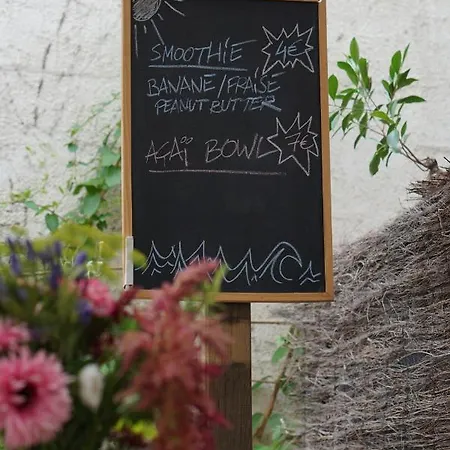 SMOOTHIE 4€
BANANE/FRAISE
PEANUT BUTTER
AÇAÏ BOWL 7€